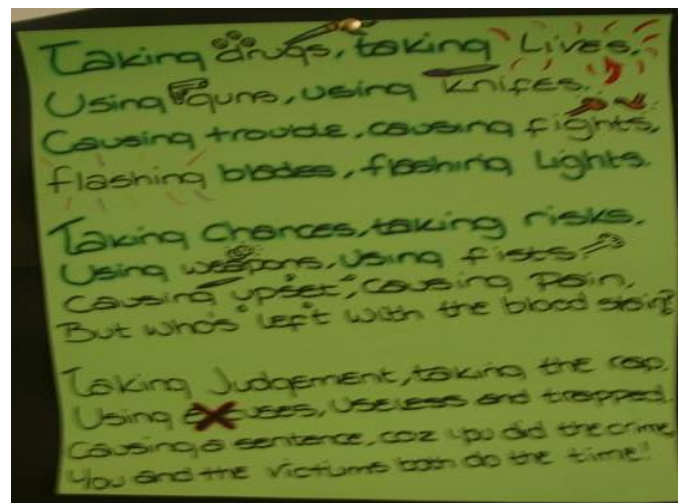 Taking drugs, taking Lives,
Using guns, using knifes.
Causing trouble, causing fights,
flashing blades, flashing Lights.
Taking Chances, taking risks,
Using weapons, using fists.
Causing upset, causing Pain,
But who's left with the blood stain?
Taking Judgement, taking the rap,
Using excuses, useless and trapped.
Causing a sentence, coz you did the crime
You and the victums both do the time!